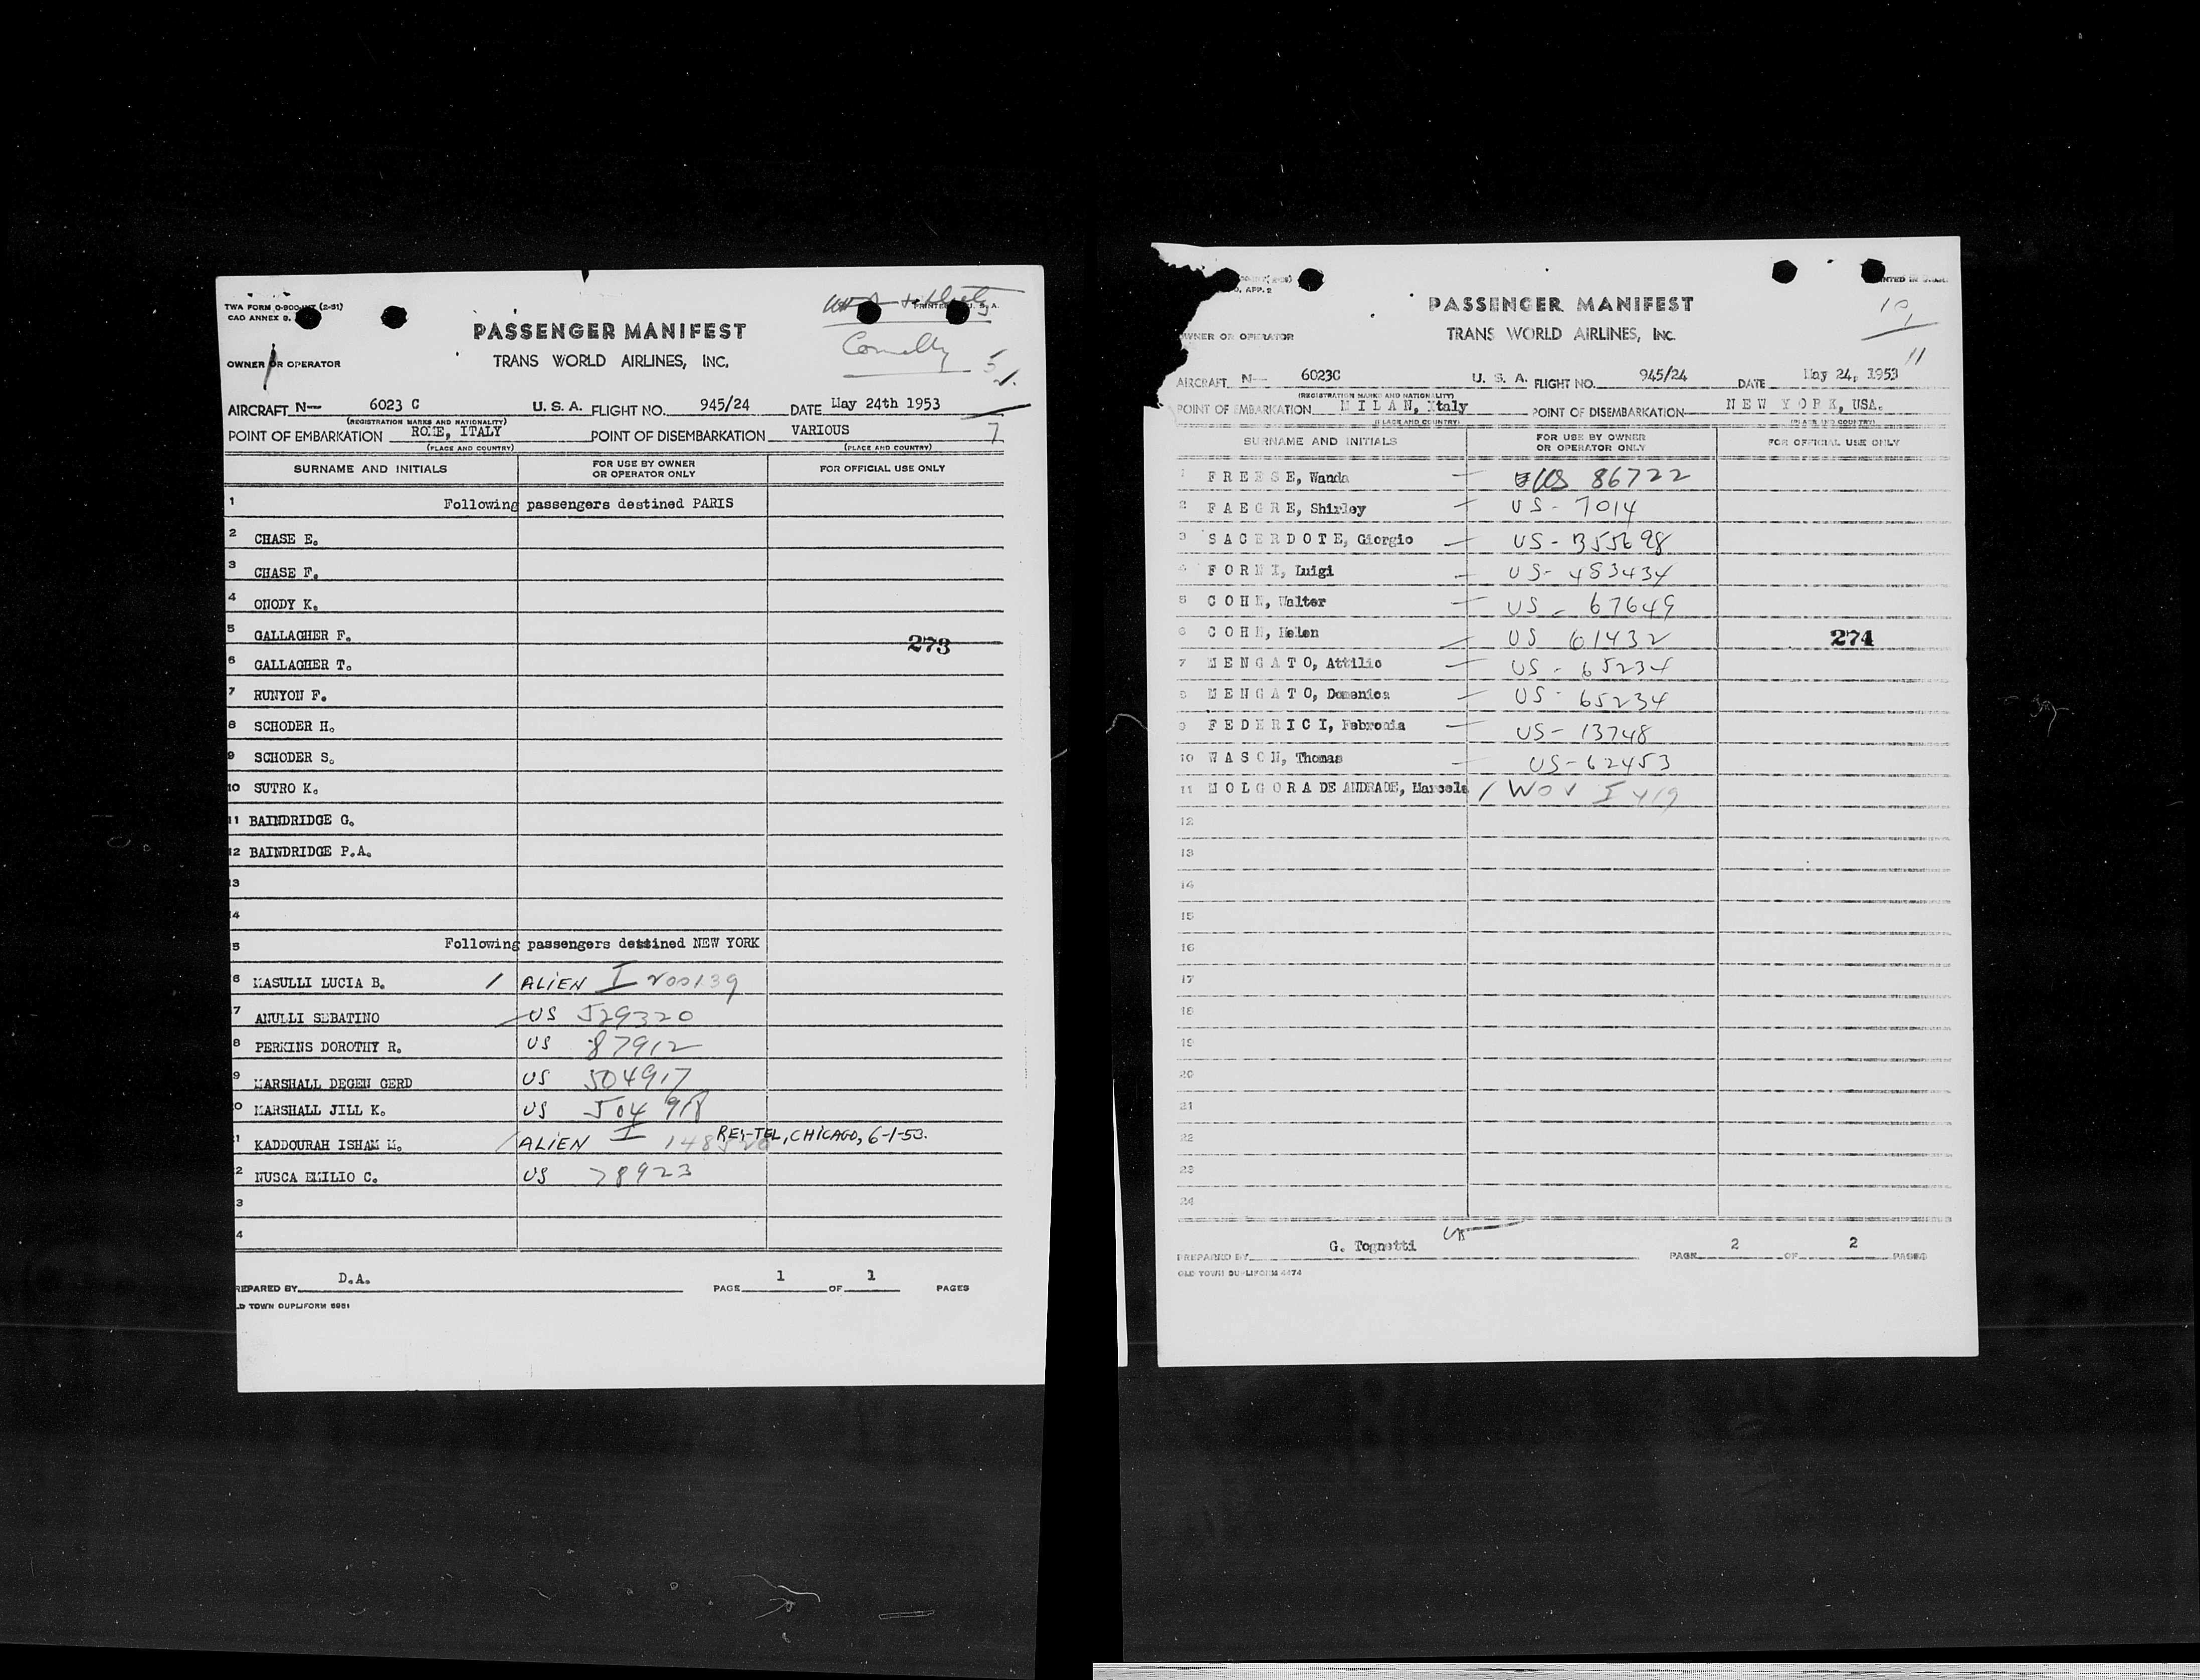 TWA FORM O-800-INT (2-51)
CAO ANNEX 9.
PRINTED U. S. A.
PASSENGER MANIFEST
Connelly
OWNER OR OPERATOR
TRANS WORLD AIRLINES, INC.
5
AIRCRAFT N— 6023 C U. S. A. FLIGHT NO. 945/24 DATE May 24th 1953
(REGISTRATION MARKS AND NATIONALITY)
POINT OF EMBARKATION ROME, ITALY POINT OF DISEMBARKATION VARIOUS 7
(PLACE AND COUNTRY) (PLACE AND COUNTRY)
SURNAME AND INITIALS FOR USE BY OWNER OR OPERATOR ONLY FOR OFFICIAL USE ONLY
1 Following passengers destined PARIS
2 CHASE E.
3 CHASE F.
4 ONODY K.
5 GALLAGHER F.
273
6 GALLAGHER T.
7 RUNYON F.
8 SCHODER H.
9 SCHODER S.
10 SUTRO K.
11 BAINDRIDGE G.
12 BAINDRIDGE P.A.
13
14
5 Following passengers destined NEW YORK
6 MASULLI LUCIA B. / ALIEN I 200139
7 ANULLI SEBATINO US 529320
8 PERKINS DOROTHY R. US 87912
9 MARSHALL DEGEN GERD US 504917
0 MARSHALL JILL K. US 504918
1 KADDOURAH ISHAM M. / ALIEN I REI-TEL, CHICAGO, 6-1-53.
2 NUSCA EMILIO C. US 78923
3
4
REPARED BY D.A. PAGE 1 OF 1 PAGES
LD TOWN DUPLIFORM 5951
O. APP. 2
PASSENGER MANIFEST
10
1
OWNER OR OPERATOR
TRANS WORLD AIRLINES, INC.
11
AIRCRAFT N— 6023C U. S. A. FLIGHT NO. 945/24 DATE May 24, 1953
(REGISTRATION MARKS AND NATIONALITY)
POINT OF EMBARKATION M I L A N, Italy POINT OF DISEMBARKATION N E W Y O R K, USA.
(PLACE AND COUNTRY) (PLACE AND COUNTRY)
SURNAME AND INITIALS FOR USE BY OWNER OR OPERATOR ONLY FOR OFFICIAL USE ONLY
1 F R E E S E, Wanda — US 86722
2 F A E G R E, Shirley — US - 7014
3 S A C E R D O T E, Giorgio — US - 355698
4 F O R N I, Luigi — US - 453434
5 C O H N, Walter — US - 67649
6 C O H N, Helen — US 61432
274
7 M E N G A T O, Attilio — US - 65234
8 M E N G A T O, Domenica — US - 65234
9 F E D E R I C I, Febronia — US - 13748
10 W A S O N, Thomas — US - 62453
11 M O L G O R A DE ANDRADE, Marcela / WOV I 419
12
13
14
15
16
17
18
19
20
21
22
23
24
PREPARED BY G. Tognetti PAGE 2 OF 2 PAGES
OLD TOWN DUPLIFORM 4474